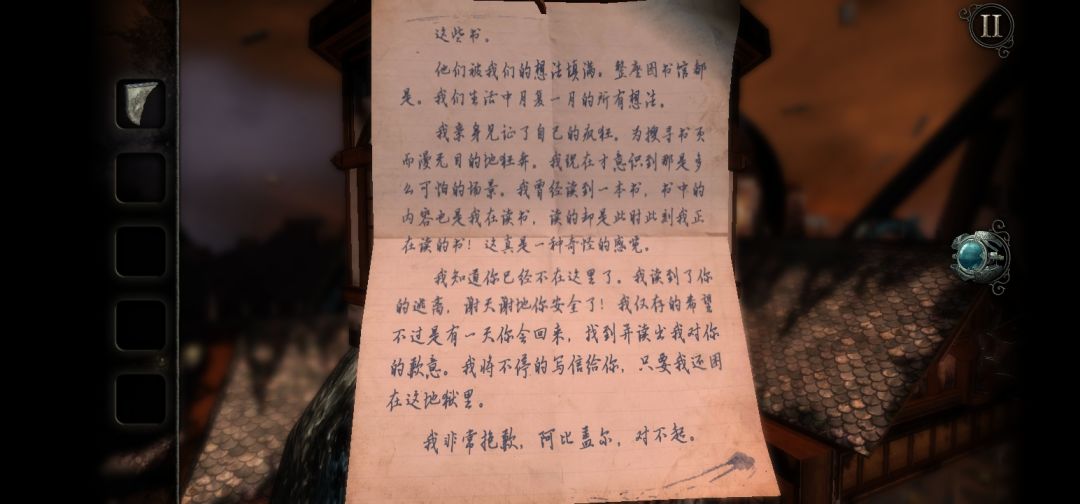 II
这些书。
他们被我们的想法填满。整座图书馆都
是。我们生活中月复一月的所有想法。
我亲身见证了自己的疯狂。为搜寻书页
而漫无目的地狂奔。我现在才意识到那是多
么可怕的场景。我曾经读到一本书，书中的
内容也是我在读书，读的却是此时此刻我正
在读的书！这真是一种奇怪的感觉。
我知道你已经不在这里了。我读到了你
的逃离，谢天谢地你安全了！我仅存的希望
不过是有一天你会回来，找到并读出我对你
的歉意。我将不停的写信给你，只要我还困
在这地狱里。
我非常抱歉，阿比盖尔，对不起。